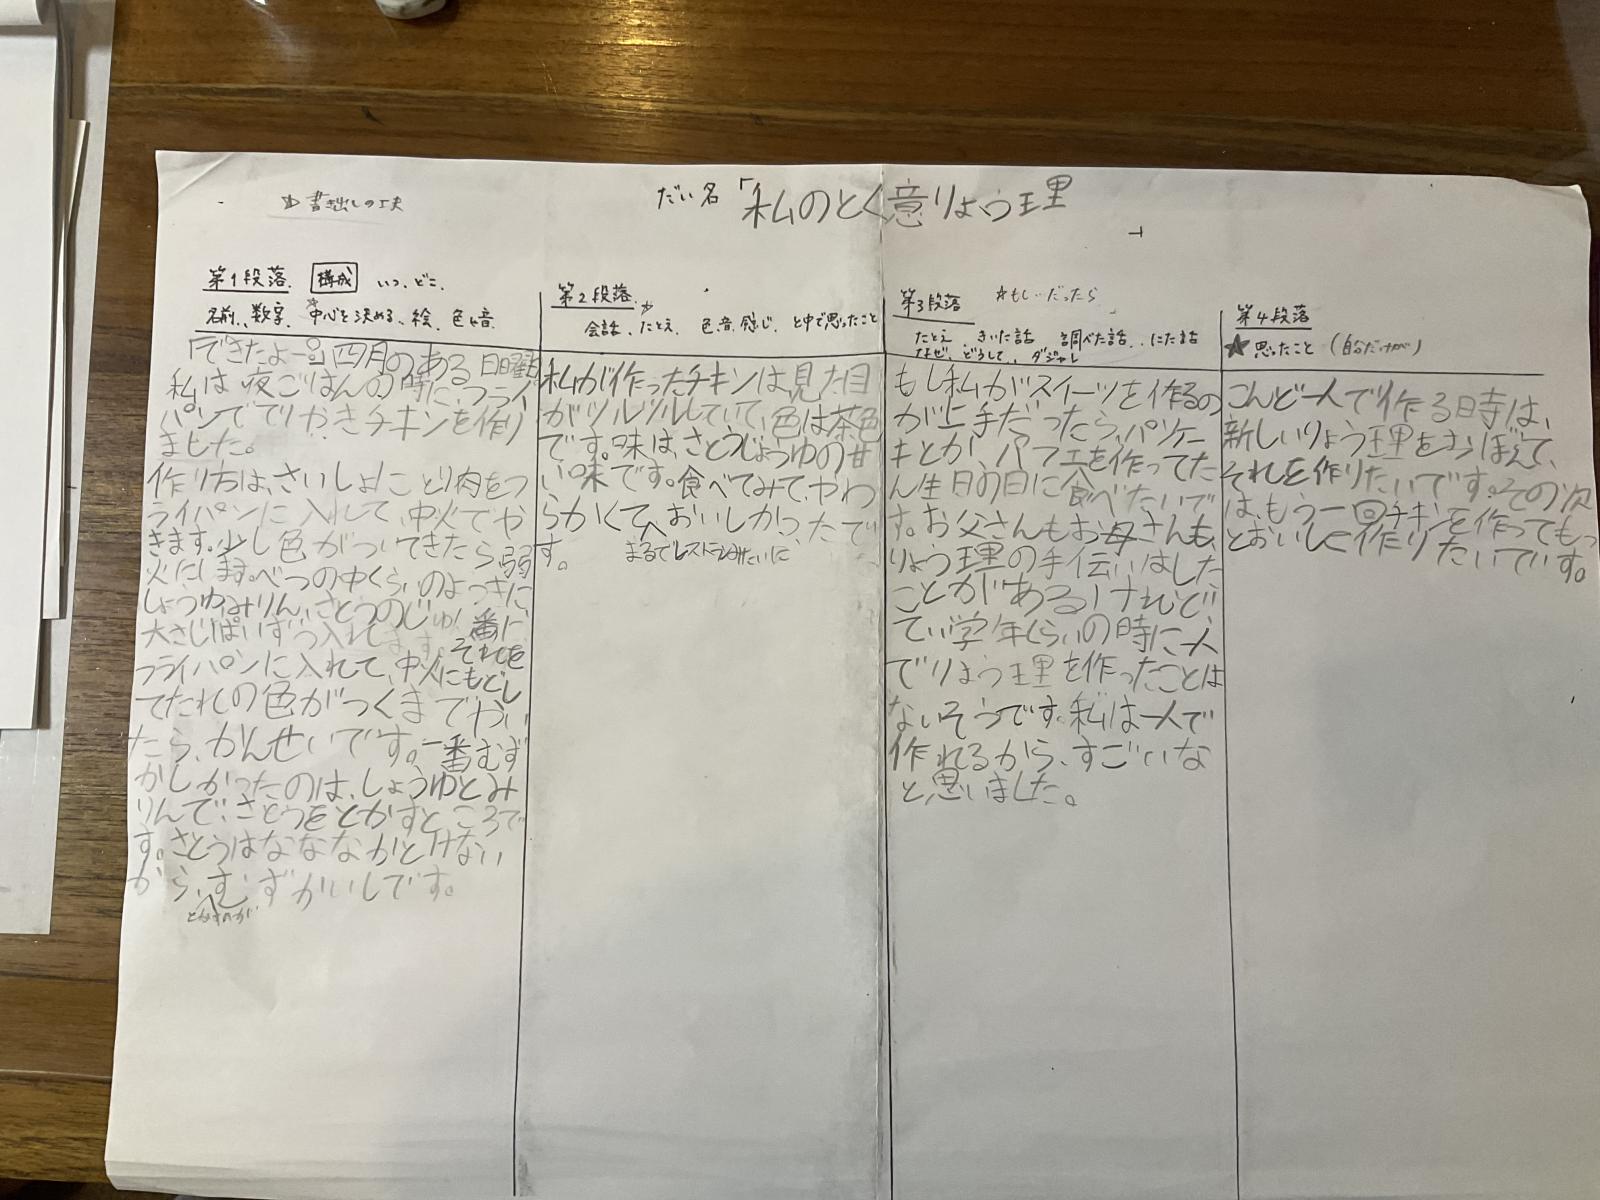 ☆書き出しの工夫
だい名「私のとく意りょう理
」
第1段落 構成 いつ、どこ、
名前、数字、☆中心を決める、絵、色や音
「できたよー。」四月のある日曜日
私は夜ごはんの時に、フライ
パンででりやきチキンを作り
ました。
作り方は、さいしょにとり肉をフ
ライパンに入れて、中火でや
きます。少し色がついてきたら弱
火にします。べつの中くらいのようきに、
しょうゆ、みりん、さとうのじゅん番に
大さじ1ぱいずつ入れます。それを
フライパンに入れて、中火にもどし
てたれの色がつくまでやい
たら、かんせいです。一番むず
かしかったのは、しょうゆとみ
りんで、さとうをとかすところで
す。さとうはなななかとけない
から、むずかいしです。
とかすのが
第2段落
☆
会話、たとえ、色、音、感じ、と中で思ったこと
私が作ったチキンは見た目
がツルツルしていて、色は茶色
です。味は、さとうじょうゆの甘
い味です。食べてみて、やわ
らかくて、おいしかったで
す。
まるでレストランみたいに
第3段落 ☆もし…だったら
たとえ きいた話 調べた話、にた話
なぜ、どうして、ダジャレ
もし私がスイーツを作るの
が上手だったら、パンケー
キとか、パフェを作ってた
ん生日の日に食べたいで
す。お父さんもお母さんも、
りょう理の手伝いはした
ことがあるけれど、
てい学年くらいの時に一人
でりょう理を作ったことは
ないそうです。私は一人で
作れるから、すごいな
と思いました。
第4段落
★思ったこと（自分だけが）
こんど一人で作る時は、
新しいりょう理をおぼえて、
それを作りたいです。その次
は、もう一回チキンを作ってもっ
とおいしく作りたいです。